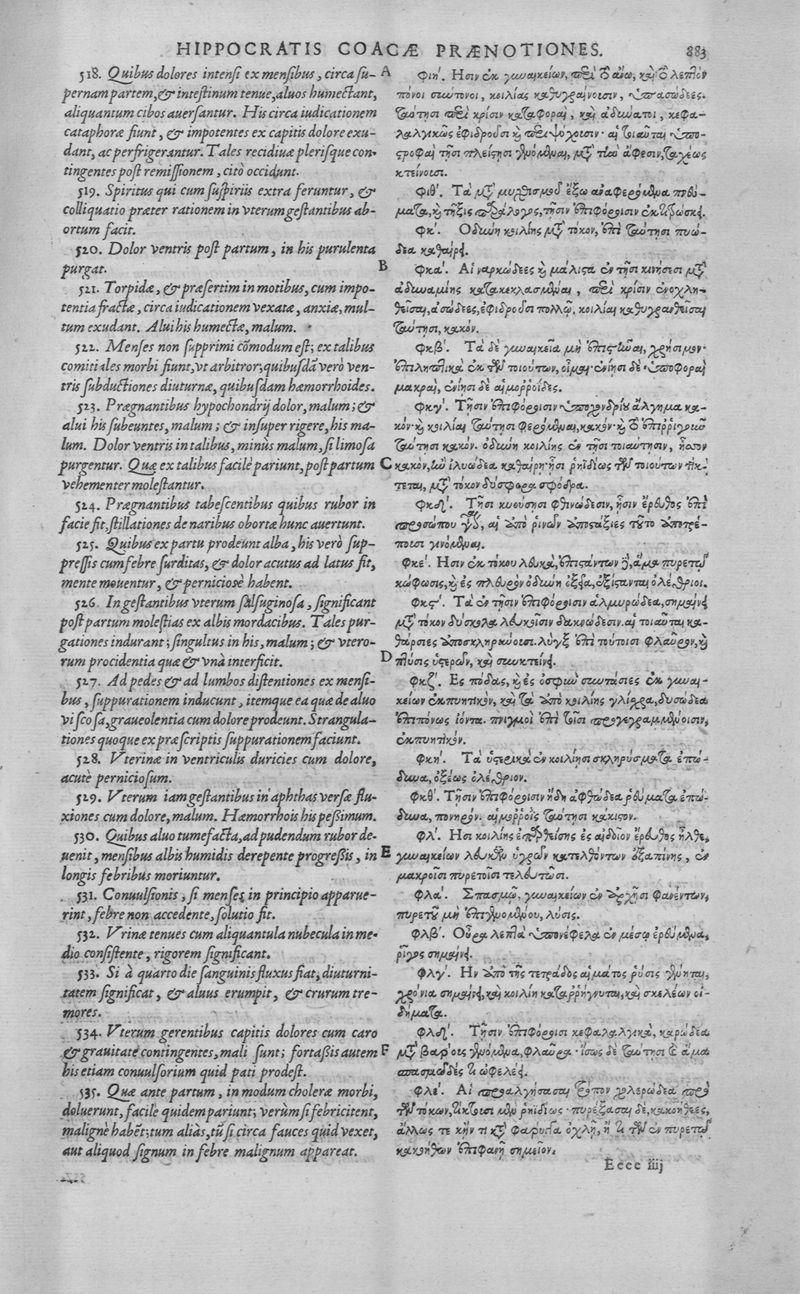 HIPPOCRATIS COACÆ PRÆNOTIONES. 883
518. Quibus dolores intensi ex mensibus, circa su-
pernam partem, & intestinum tenue, aluos humectant,
aliquantum cibos auersantur. His circa iudicationem
cataphoræ fiunt, & impotentes ex capitis dolore exu-
dant, ac perfrigerantur. Tales recidiuæ plerisque con-
tingentes post remissionem, citò occidunt.
519. Spiritus qui cum suspiriis extra feruntur, &
colliquatio præter rationem in vterum gestantibus ab-
ortum facit.
520. Dolor ventris post partum, in his purulenta
purgat.
521. Torpidæ, & præsertim in motibus, cum impo-
tentia fractæ, circa iudicationem vexatæ, anxiæ, mul-
tum exudant. Alui his humectæ, malum.
522. Menses non supprimi cōmodum est; ex talibus
comitiales morbi fiunt, vt arbitror; quibusdā verò ven-
tris subductiones diuturnæ, quibusdam hæmorrhoides.
523. Prægnantibus hypochondrij dolor, malum; &
alui his subeuntes, malum; & insuper rigere, his ma-
lum. Dolor ventris in talibus, minùs malum, si limosa
purgentur. Quæ ex talibus facilè pariunt, post partum
vehementer molestantur.
524. Prægnantibus tabescentibus quibus rubor in
facie fit, stillationes de naribus obortæ hunc auertunt.
525. Quibus ex partu prodeunt alba, his verò sup-
pressis cum febre surditas, & dolor acutus ad latus fit,
mente mouentur, & perniciosè habent.
526. In gestantibus vterum salsuginosa, significant
post partum molestias ex albis mordacibus. Tales pur-
gationes indurant; singultus in his, malum; & vtero-
rum procidentia quæ & vnà interficit.
527. Ad pedes & ad lumbos distentiones ex mensi-
bus, suppurationem inducunt, itemque ea quæ de aluo
viscosa, graueolentia cum dolore prodeunt. Strangula-
tiones quoque ex præscriptis suppurationem faciunt.
528. Vterina in ventriculis duricies cum dolore,
acutè perniciosum.
529. Vterum iam gestantibus in aphthas versæ flu-
xiones cum dolore, malum. Hæmorrhois his pessimum.
530. Quibus aluo tumefacta, ad pudendum rubor de-
uenit, mensibus albis humidis derepente progressis, in
longis febribus moriuntur.
531. Conuulsionis, si menses in principio apparue-
rint, febre non accedente, solutio fit.
532. Vrinæ tenues cum aliquantula nubecula in me-
dio consistente, rigorem significant.
533. Si à quarto die sanguinis fluxus fiat, diuturni-
tatem significat, & aluus erumpit, & crurum tre-
mores.
534. Vterum gerentibus capitis dolores cum caro
& grauitate contingentes, mali sunt; fortassis autem
his etiam conuulsorium quid pati prodest.
535. Quæ ante partum, in modum choleræ morbi,
doluerunt, facile quidem pariunt; verùm si febricitent,
malignè habēt; tum aliàs, tū si circa fauces quid vexet,
aut aliquod signum in febre malignum appareat.
A
B
C
D
E
F
φιή. Ησιν ἐκ γυναικείων, περὶ τὸ ἄνω, καὶ τὸ λεπτὸν
πόνοι σύντονοι, κοιλίας καθυγραίνουσιν, ὑπασώδεες.
ταύτησι περὶ κρίσιν καταφοραί, καὶ ἀδύνατοι, κεφα-
λαλγικῶς ἐφιδροῦσι καὶ περιψύχουσιν· αἱ τοιαῦται ὑπο-
στροφαὶ τῇσι πλείστῃσι γενόμεναι, μετὰ τὴν ἄφεσιν, ταχέως
κτείνουσι.
φιθ'. Τὰ μετὰ μυχθισμοῦ ἔξω ἀναφερόμενα πνεύ-
ματα, καὶ τῆξις παράλογος, τῇσιν ἐπιφόροισιν ἐκτιτρώσκει.
φκ'. Οδύνη κοιλίης μετὰ τόκον, ἐπὶ ταύτῃσι πυώ-
δεα καθαίρει.
φκα'. Αἱ ναρκώδεες καὶ μάλιστα ἐν τῇσι κινήσεσι μετὰ
ἀδυναμίης κατακεκλασμέναι, περὶ κρίσιν ἐνοχλη-
θεῖσαι, ἀσώδεες, ἐφιδροῦσι πολλῷ, κοιλίαι καθυγρανθεῖσαι
ταύτησι, κακόν.
φκβ'. Τὰ δὲ γυναικεῖα μὴ ἐπιστῆναι, χρήσιμον·
ἐπιληπτικὰ ἐκ τῶν τοιούτων, οἶμαι· ἐνίησι δὲ ὑποφοραὶ
μακραί, ἐνίησι δὲ αἱμορροΐδες.
φκγ'. Τῇσιν ἐπιφόροισιν ὑποχονδρίου ἄλγημα κα-
κόν· καὶ κοιλίαι ταύτησι φερόμεναι, κακόν· καὶ τὸ ἐπιρριγοῦν
ταύτησι κακόν. ὀδύνη κοιλίης ἐν τῇσι τοιαύτῃσιν, ἧσσον
κακὸν, ἢν ἰλυώδεα καθαίρῃ· ᾗσι ῥηϊδίως τῶν τοιούτων τίκ-
τεται, μετὰ τόκον δύσφορα σφόδρα.
φκδ'. Τῇσι κυούσῃσι φθινώδεσιν, ᾗσιν ἔρευθος ἐπὶ
προσώπου, αἱ ἀπὸ ῥινῶν ἀποστάξιες τοῦτο ἀποτρέ-
πουσι γινόμεναι.
φκέ. Ησιν ἐκ τόκου λευκὰ, ἐπιστάντων δὲ, ἅμα πυρετῷ
κώφωσις, καὶ ἐς πλευρὸν ὀδύνη ὀξέα, ἐξίστανται ὀλέθριοι.
φκϛ'. Τὰ ἐν τῇσιν ἐπιφόροισιν ἁλμυρώδεα, σημαίνει
μετὰ τόκον δύσκολα λευκοῖσιν δακνώδεσιν. αἱ τοιαῦται κα-
θάρσιες ἀποσκληρύνουσι. λὺγξ ἐπὶ τούτοισι φλαῦρον, καὶ
πτύσις ὑστερῶν, καὶ συγκτείνει.
φκζ'. Ες πόδας, καὶ ἐς ὀσφὺν συντάσιες ἐκ γυναι-
κείων ἐκπυητικόν, καὶ τὰ ἀπὸ κοιλίης γλίσχρα, δυσώδεα
ἐπιπόνως ἰόντα. πνιγμοὶ ἐπὶ τοῖσι προγεγραμμένοισιν,
ἐκπυητικόν.
φκή. Τὰ ὑστερικὰ ἐν κοιλίῃσι σκληρύσματα ἐπώ-
δυνα, ὀξέως ὀλέθριον.
φκθ'. Τῇσιν ἐπιφόροισιν ἤδη ἀφθώδεα ῥεύματα ἐπώ-
δυνα, πονηρόν. αἱμορροῒς ταύτῃσι κάκιστον.
φλ'. Ησι κοιλίης ἐπαρθείσης ἐς αἰδοῖον ἔρευθος ἦλθε,
γυναικείων λευκῶν ὑγρῶν κατελθόντων ἐξαπίνης, ἐν
μακροῖσι πυρετοῖσι τελευτῶσι.
φλα'. Σπασμῷ, γυναικείων ἐν ἀρχῇσι φανέντων,
πυρετοῦ μὴ ἐπιγενομένου, λύσις.
φλβ'. Οὖρα λεπτὰ ὑπονέφελα ἐν μέσῳ ἐρεόμενα,
ῥῖγος σημαίνει.
φλγ'. Ην ἀπὸ τῆς τετράδος αἵματος ῥύσις γένηται,
χρόνια σημαίνει, καὶ κοιλίη καταρρήγνυται, καὶ σκελέων οἰ-
δήματα.
φλδ'. Τῇσιν ἐπιφόροισι κεφαλαλγικὰ, καρώδεα
μετὰ βάρους γενόμενα, φλαῦρα· ἴσως δὲ ταύτησι καὶ ἅμα
σπασμῶδές τι ὠφελέει.
φλέ. Αἱ προαλγήσασαι τρόπον χολερώδεα πρὸ
τῶν τόκων, τίκτουσι μὲν ῥηϊδίως· πυρέξασαι δὲ, κακοήθεες,
ἄλλως τε κἤν τι κατὰ φάρυγγα ὀχλῇ, ἤ τι τῶν ἐν πυρετῷ
κακοήθων ἐπιφανῇ σημεῖον.
Eeee iiij